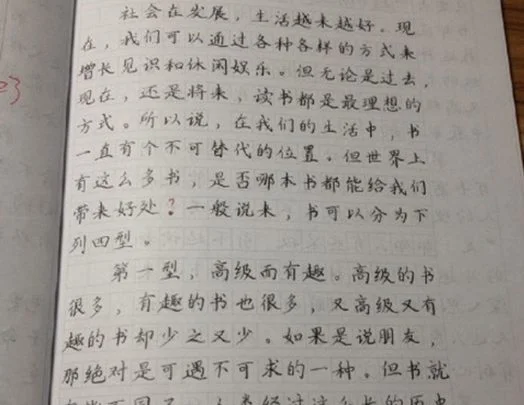 社会在发展，生活越来越好。现
在，我们可以通过各种各样的方式来
增长见识和休闲娱乐。但无论是过去，
现在，还是将来，读书都是最理想的
方式。所以说，在我们的生活中，书
一直有个不可替代的位置。但世界上
有这么多书，是否哪本书都能给我们
带来好处？一般说来，书可以分为下
列四型。
第一型，高级而有趣。高级的书
很多，有趣的书也很多，又高级又有
趣的书却少之又少。如果是说朋友，
那绝对是可遇不可求的一种。但书就
人类经过这么长的历史